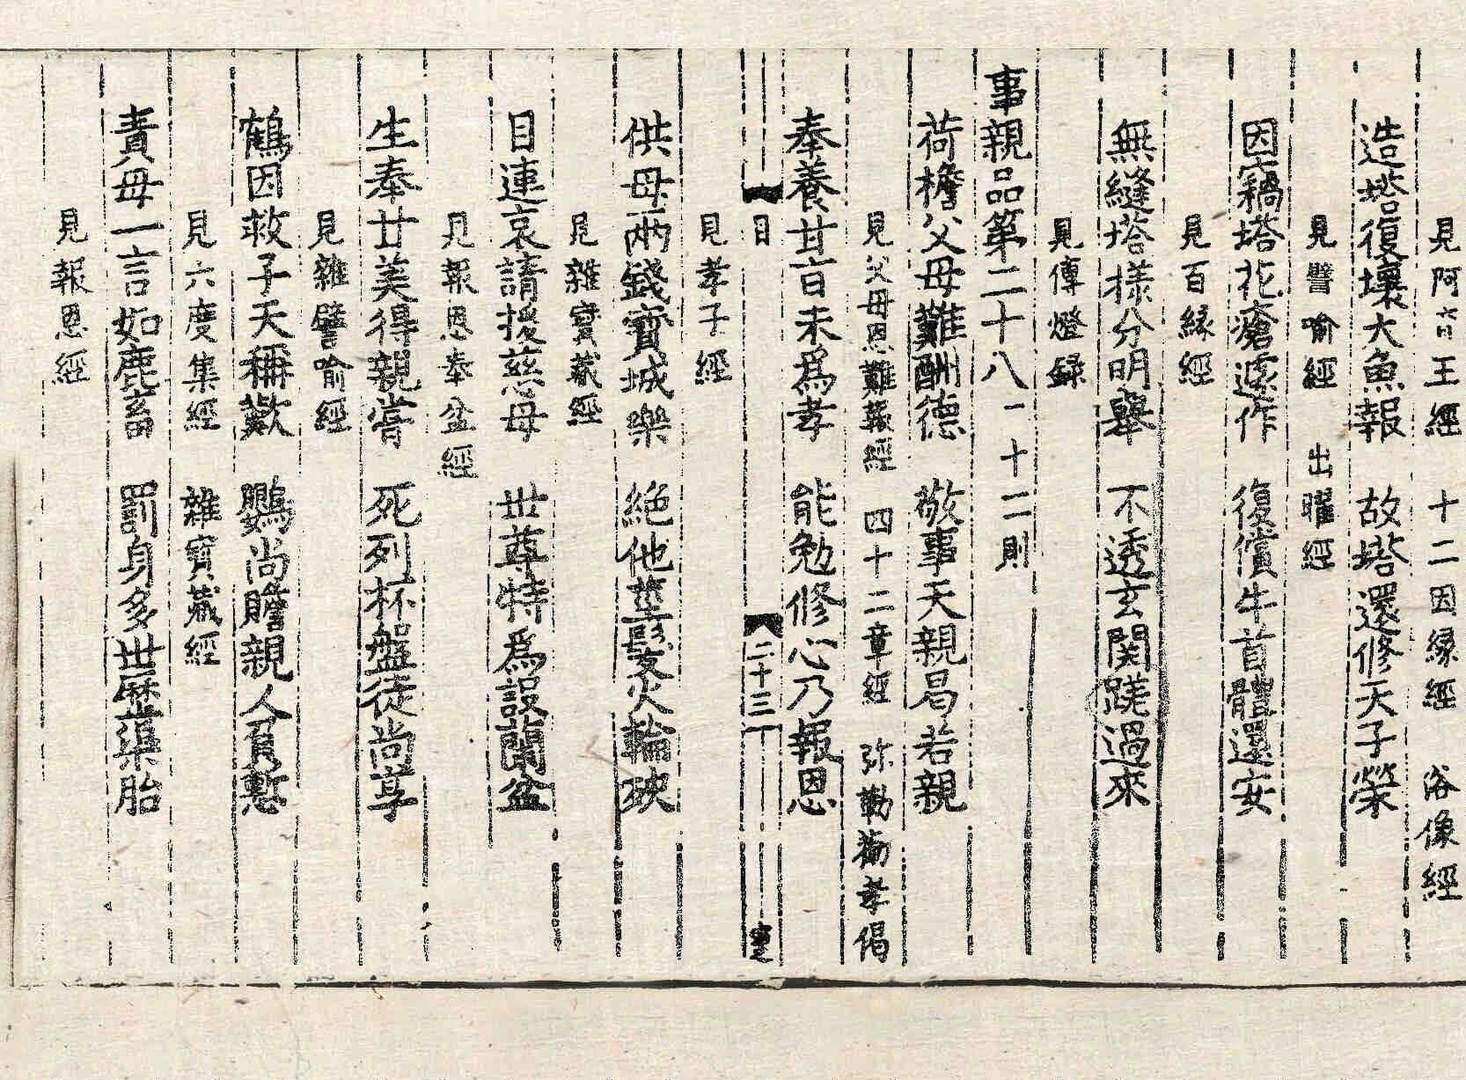 見阿育王經 十二因緣經 俗像經
造塔復壞大魚報 故塔還修天子榮
見譬喻經 出曜經
因竊塔花瘡遽作 復償牛首體還安
見百緣經
無縫塔樣分明舉 不透玄関蹉過來
見傳燈錄
事親品第二十八 一十二則
荷檐父母難酬德 敬事天親曷若親
見父母恩難報經 四十二章經 弥勒勸孝偈
奉養甘旨未爲孝 能勉修心乃報恩
目 二十三
見孝子經
供母兩錢寶城樂 絕他莖髮火輪殃
見雜寶藏經
目連哀請援慈母 世尊特爲設蘭盆
見報恩奉盆經
生奉甘美得親嘗 死列杯盤徒尚享
見雜譬喻經
鶴因救子天稱歎 鸚尚贍親人負慙
見六度集經 雜寶藏經
責母一言如鹿畜 罰身多世歷渠胎
見報恩經